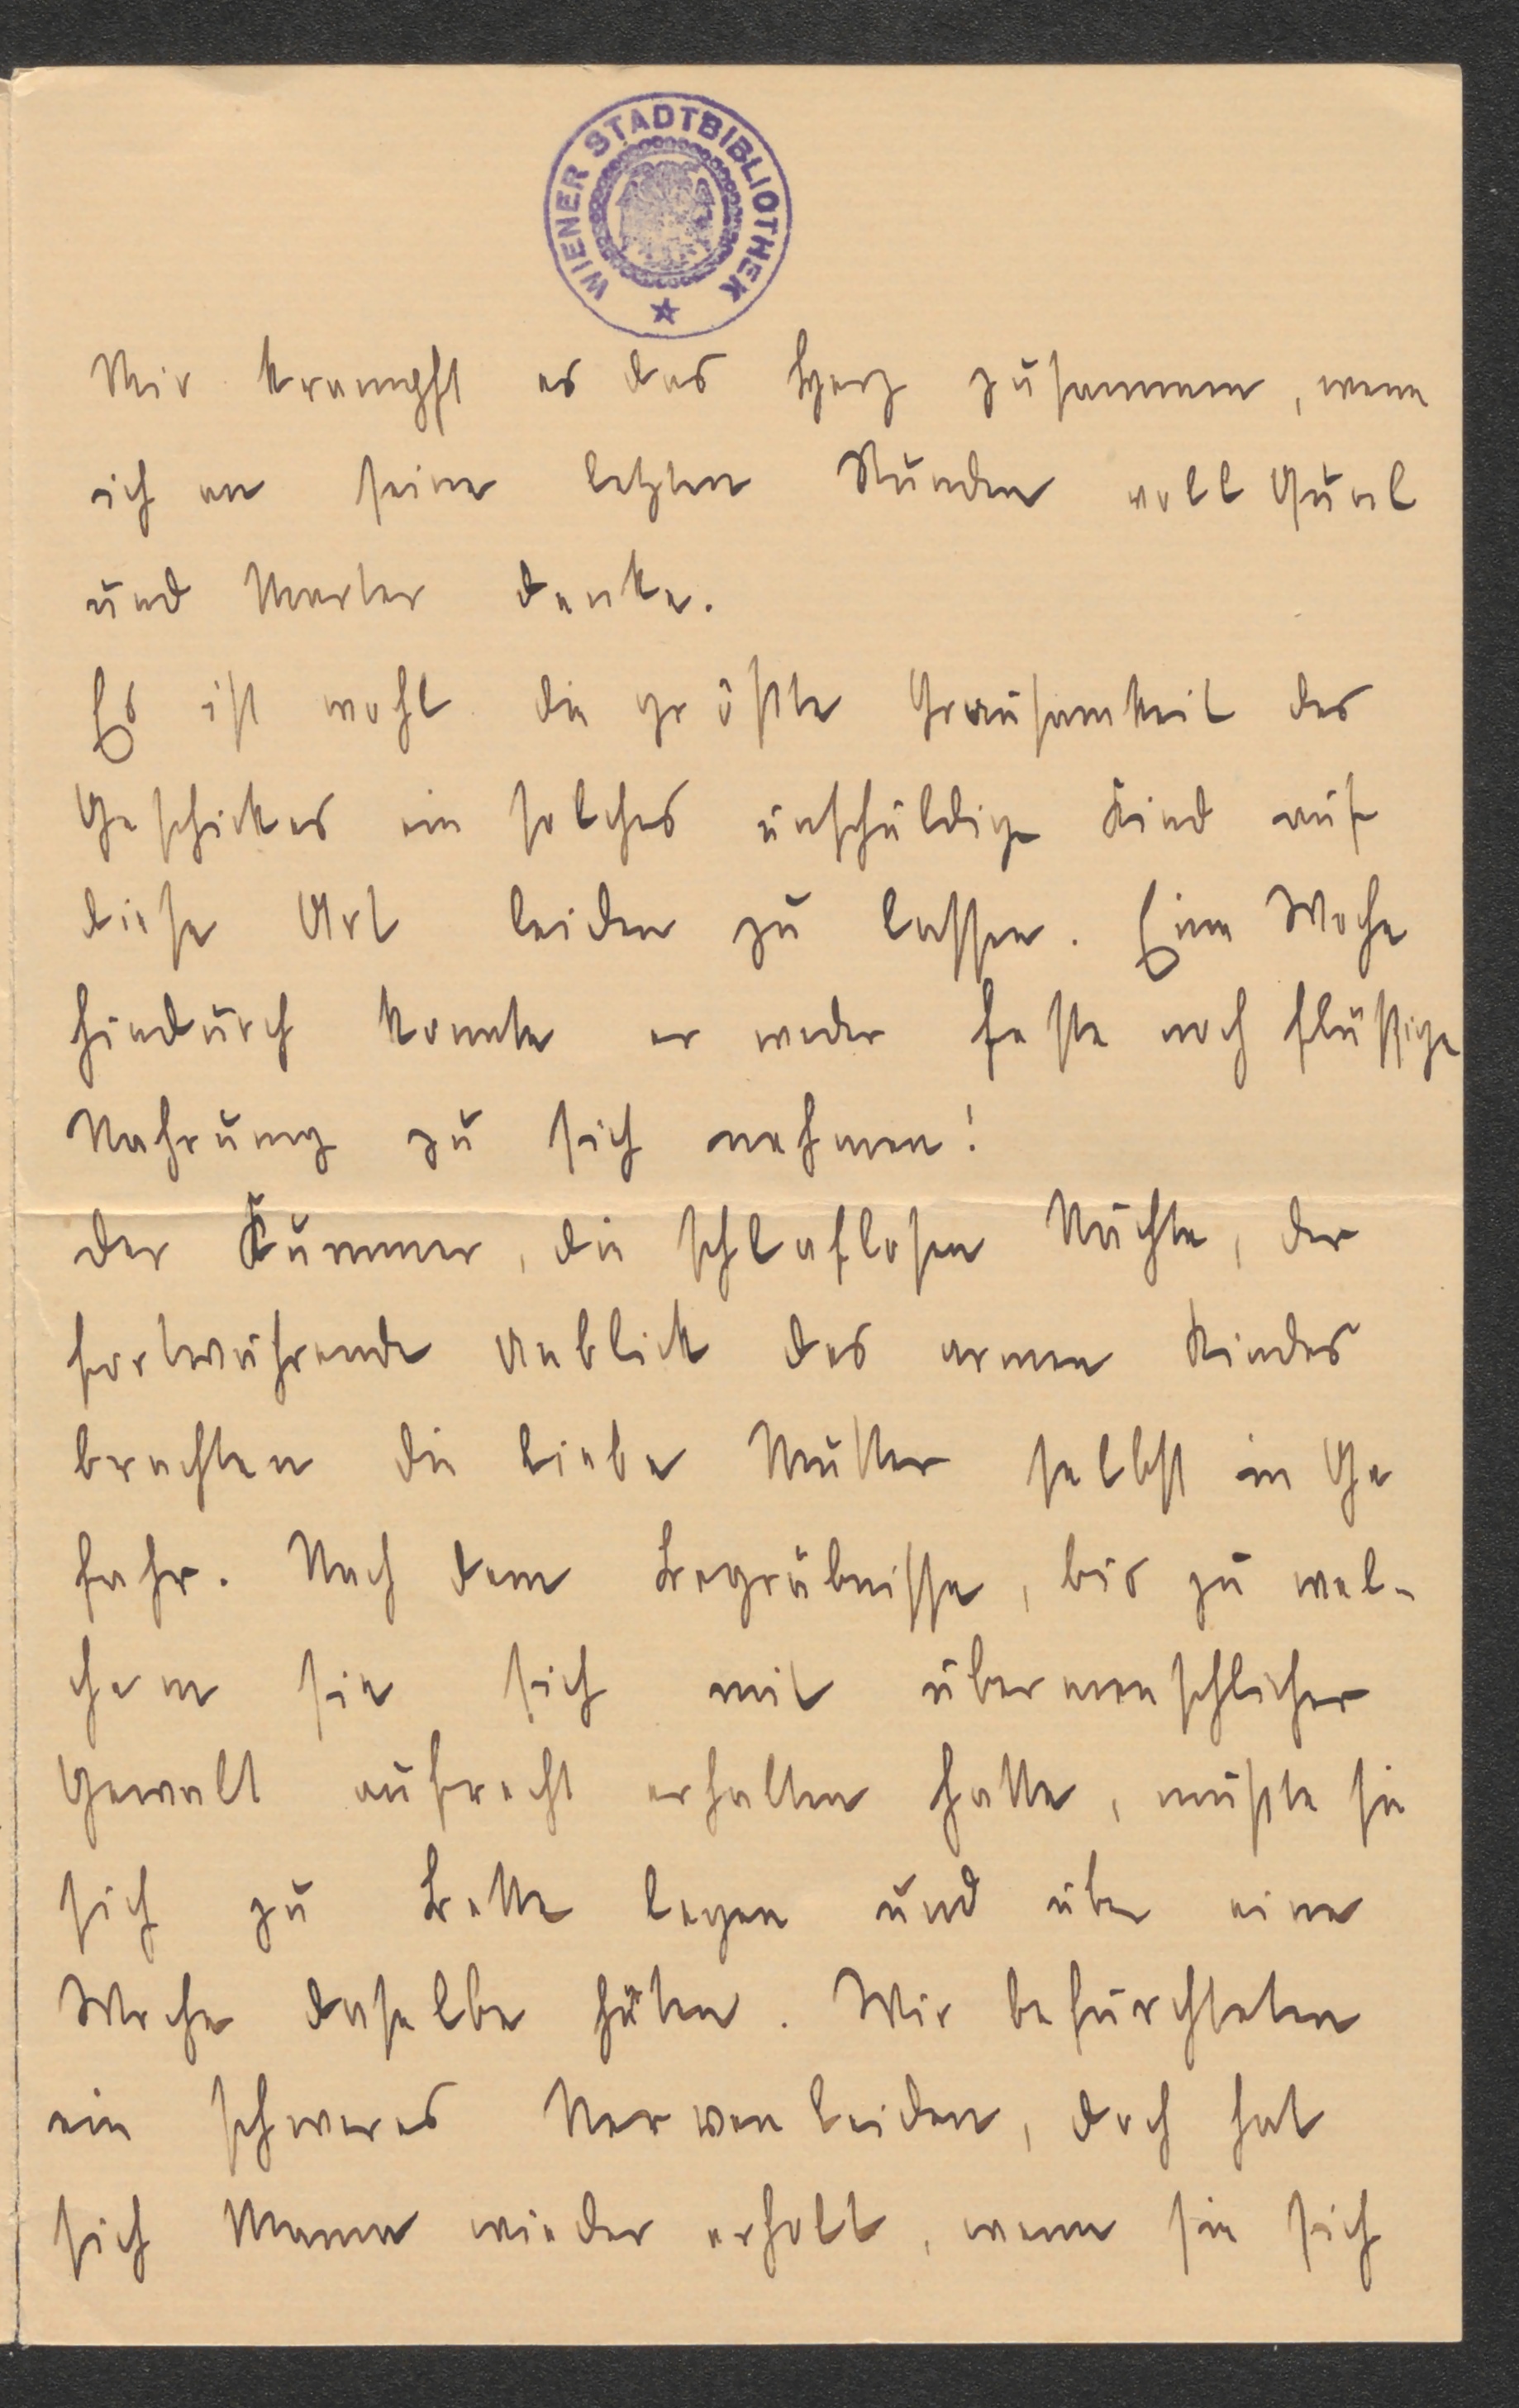 WIENER STADTBIBLIOTHEK
Mir krampft es das Herz zusammen, wenn
ich an seine letzten Stunden voll Qual
und Marter denke.
Es ist wohl die größte Grausamkeit des
Geschickes ein solches unschuldige Kind auf
diese Art leiden zu lassen. Eine Woche
hindurch konnte er weder feste noch flüßige
Nahrung zu sich nehmen!
Der Kummer, die schlaflosen Nächte, der
fortwährende Anblick des armen Kindes
brachten die liebe Mutter selbst in Ge
fahr. Nach dem Begräbnisse, bis zu wel-
chem sie sich mit übermenschlicher
Gewalt aufrecht erhalten hatte, mußte sie
sich zu Bette legen und über eine
Woche daselbe hüten. Wir befürchteten
ein schweres Nervenleiden, doch hat
sich Mama wieder erholt, wenn sie sich